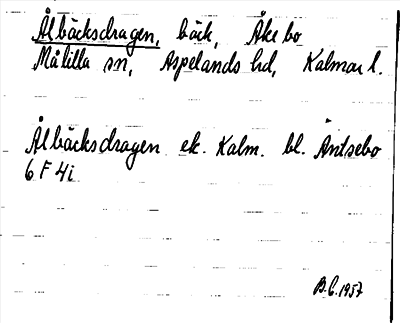 Ålbäcksdragen, bäck, Åkebo
Målilla sn, Aspelands hd, Kalmar l.
Ålbäcksdragen ek. Kalm. bl. Äntsebo
6 F 4i
B.C. 1957